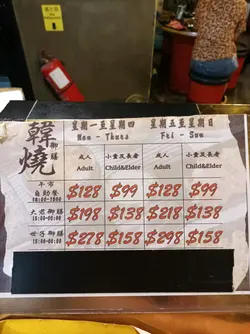 韓燒御膳
星期一至星期四 星期五至星期日
Mon - Thurs Fri - Sun
成人 小童及長者 成人 小童及長者
Adult Child&Elder Adult Child&Elder
午市
自助餐 $128 $99 $128 $99
大君御膳 $198 $138 $218 $138
世子御膳 $278 $158 $298 $158